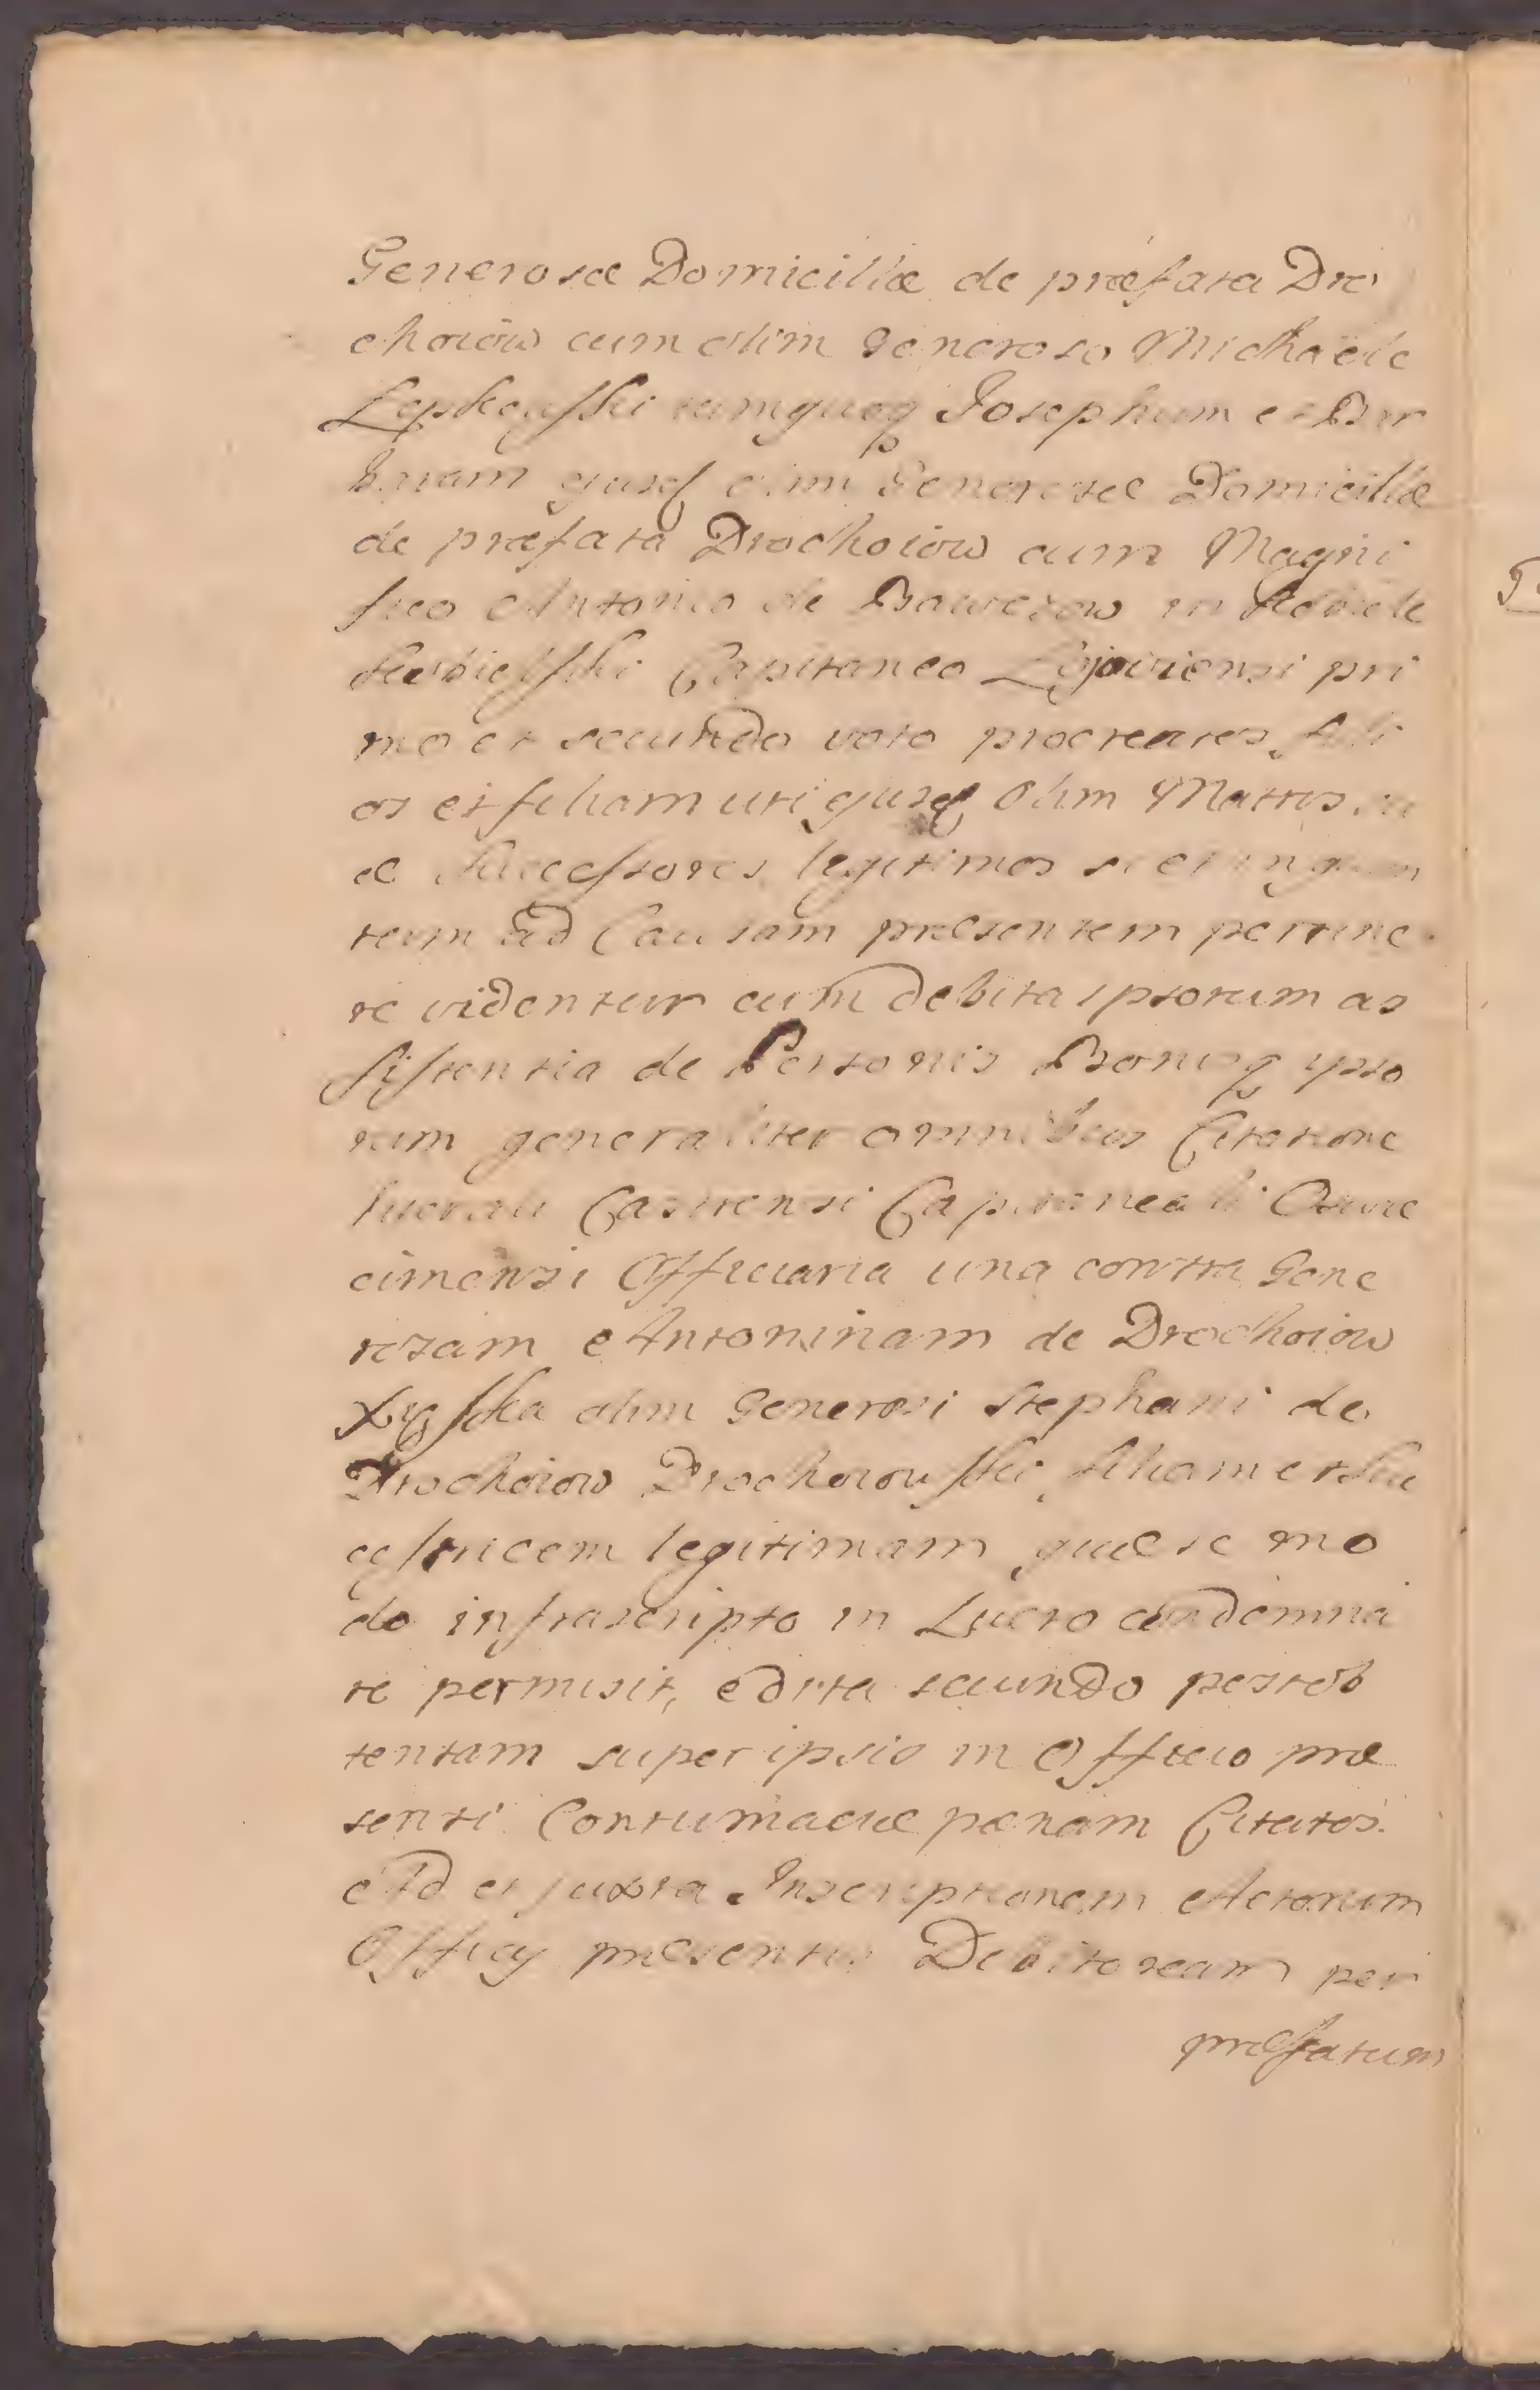 Generosæ Domicillæ de præfata Dro
choiow cum olim Generoso Michaële
Lepkowski tumquoq Josephum et Bar
baram ejusq olim Generosæ Domicillæ
de præfata Drochoiow cum Magni
fico Antonio de Baworow in
Capitaneo pri
mo et secundo voto procreatos, fili
os et filiam uti ejusq Olim Matris su
æ Successores legitimos si et in quan
tum ad Causam præsentem pertine
re videntur cum debita ipsorum as
sistentia de Personis Bonisq ipso
rum generaliter omnibus Citatione
lucrali Castrensi Capitaneali Oswie
cimensi Officiaria una contra Gene
rosam Antoninam de Drochoiow
olim Generosi Stephani de
Drochoiow Drochoiowski filiam et Su
ccessricem legitimam quæ se mo
do infrascripto in Lucro condemna
re permisit, edita secundo post ob
tentam super ipsis in Officio præ
senti Contumaciæ pœnam Citatos.
Ad et juxta Inscriptionem Actorum
Officij præsentis Debitoream per
præfatum